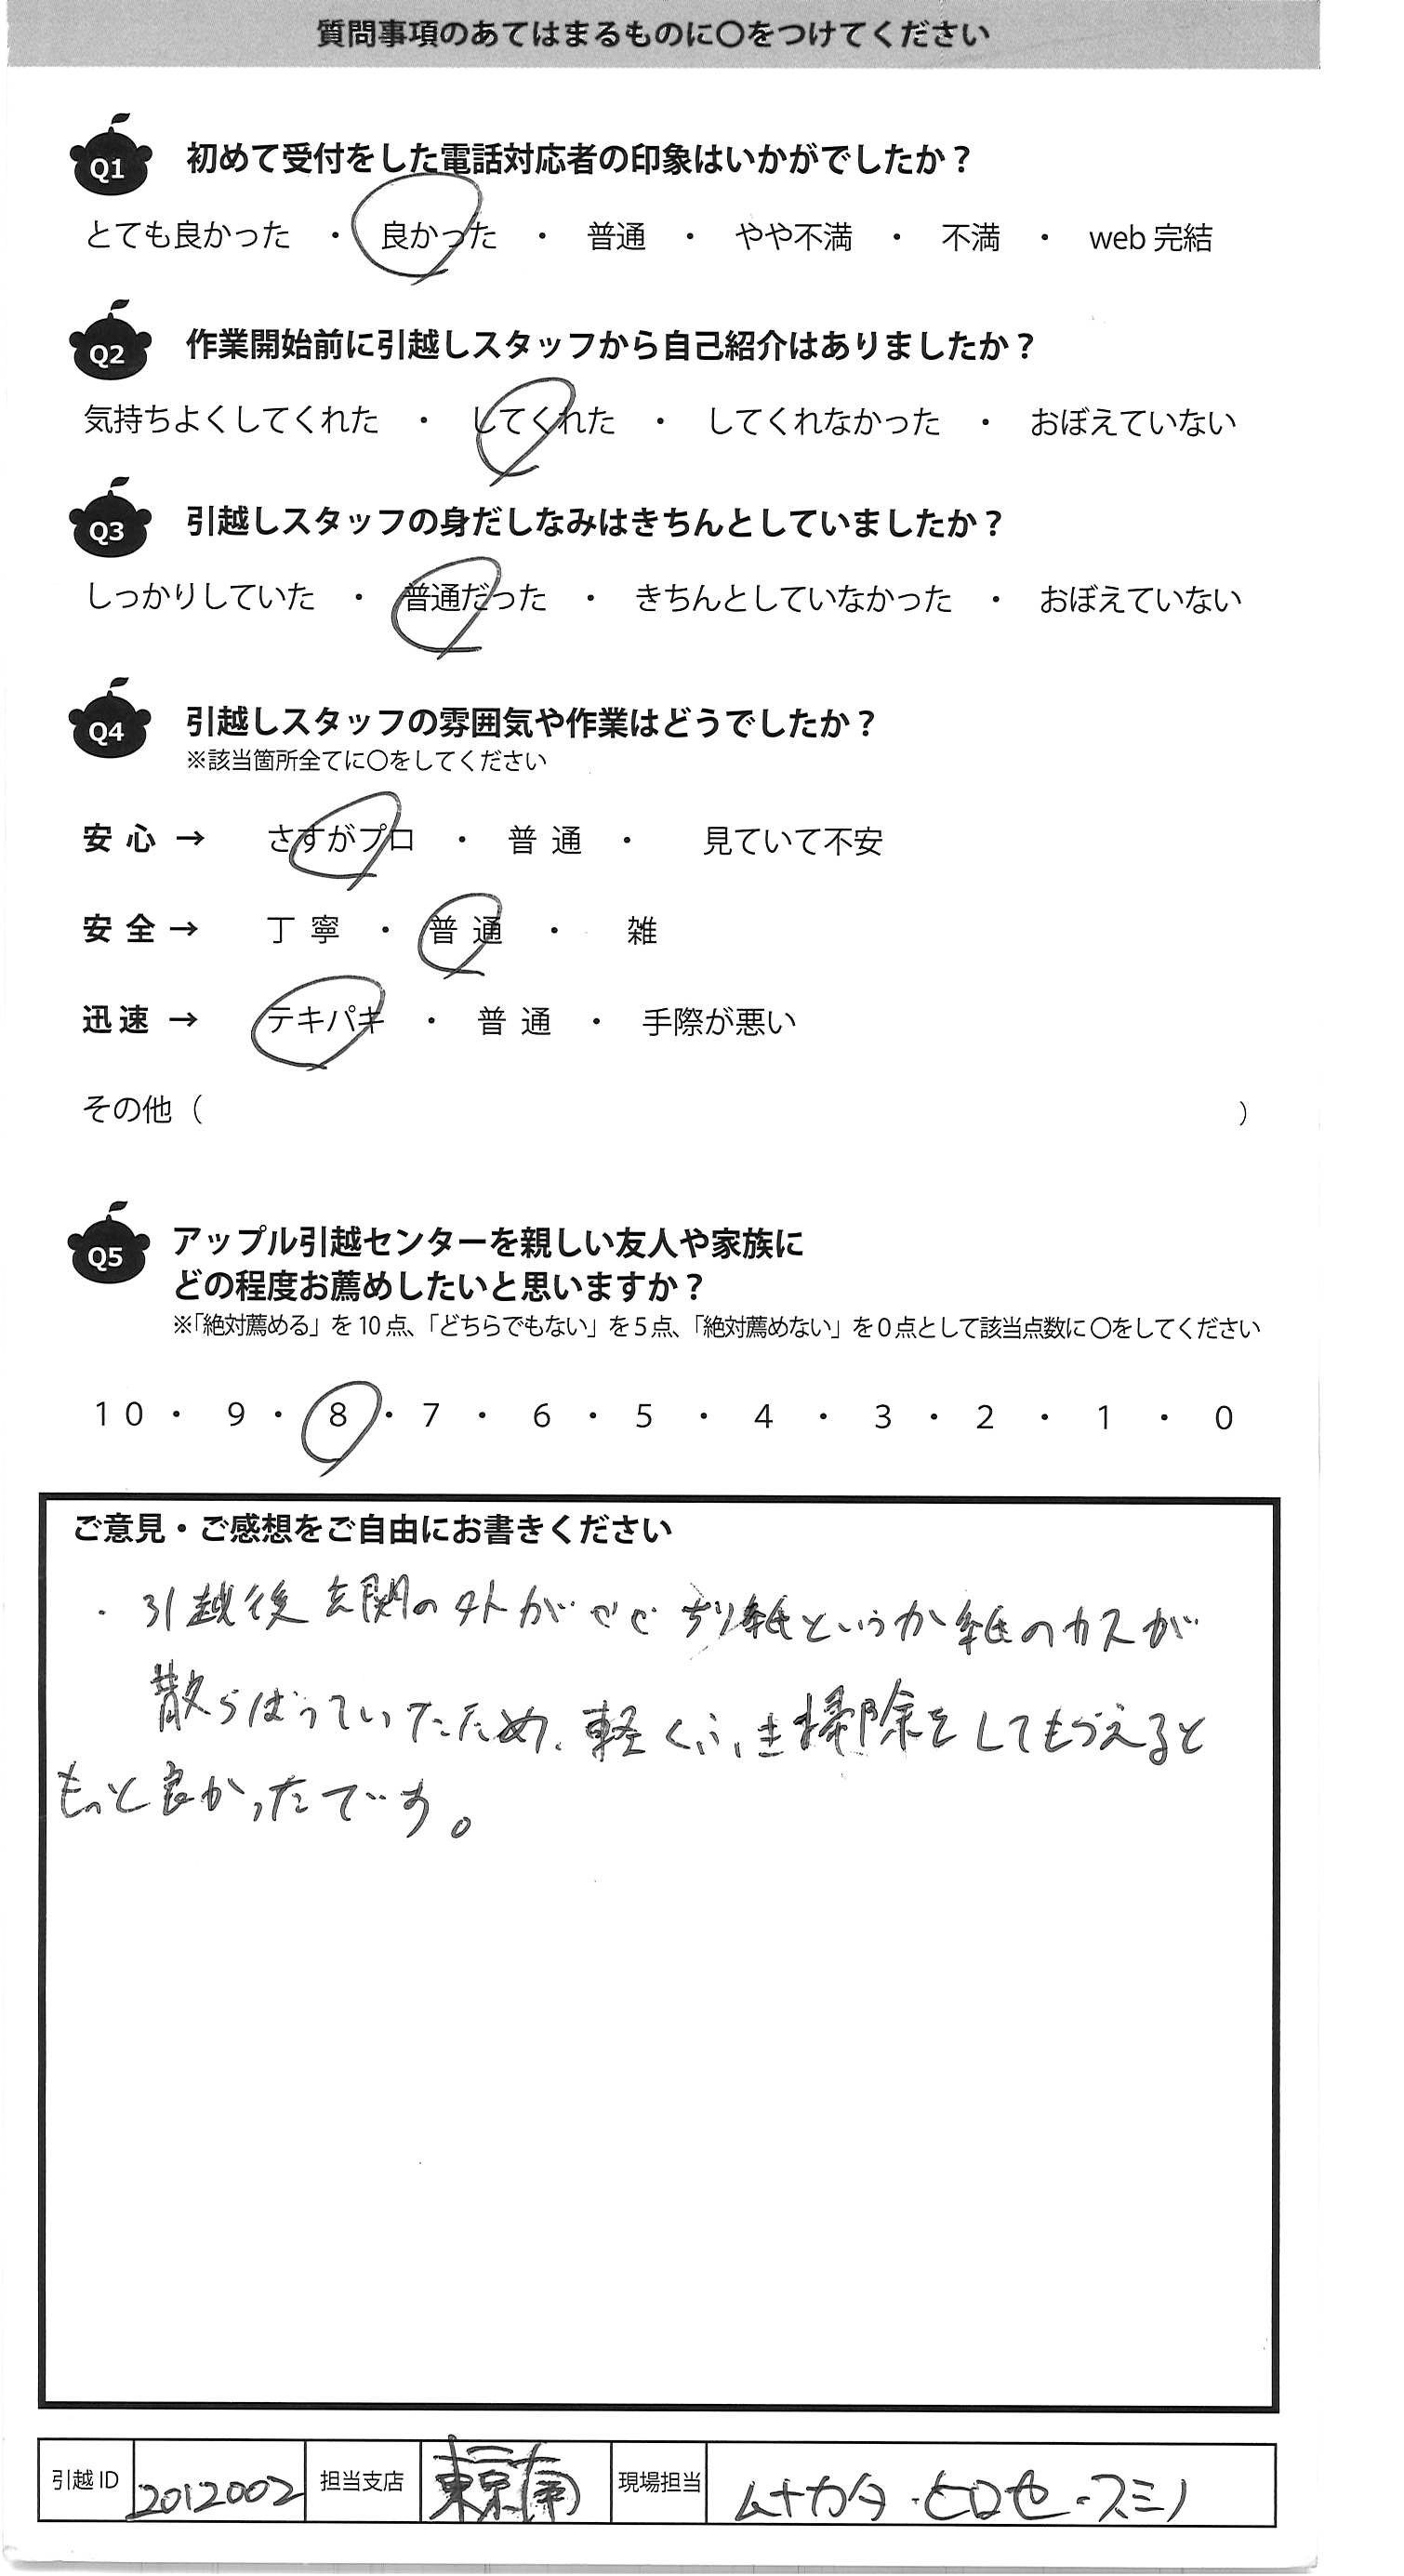 質問事項のあてはまるものに〇をつけてください
Q1 初めて受付をした電話対応者の印象はいかがでしたか？
とても良かった ・ 良かった ・ 普通 ・ やや不満 ・ 不満 ・ web 完結
Q2 作業開始前に引越しスタッフから自己紹介はありましたか？
気持ちよくしてくれた ・ してくれた ・ してくれなかった ・ おぼえていない
Q3 引越しスタッフの身だしなみはきちんとしていましたか？
しっかりしていた ・ 普通だった ・ きちんとしていなかった ・ おぼえていない
Q4 引越しスタッフの雰囲気や作業はどうでしたか？
※該当箇所全てに〇をしてください
安心 → さすがプロ ・ 普通 ・ 見ていて不安
安全 → 丁寧 ・ 普通 ・ 雑
迅速 → テキパキ ・ 普通 ・ 手際が悪い
その他（ ）
Q5 アップル引越センターを親しい友人や家族に
どの程度お薦めしたいと思いますか？
※「絶対薦める」を 10 点、「どちらでもない」を 5 点、「絶対薦めない」を 0 点として該当点数に〇をしてください
10 ・ 9 ・ 8 ・ 7 ・ 6 ・ 5 ・ 4 ・ 3 ・ 2 ・ 1 ・ 0
ご意見・ご感想をご自由にお書きください
・引越後玄関の外が 紙というか紙のカスが
散らばっていたため、軽くふき掃除をしてもらえると
もっと良かったです。
引越 ID 2012002 担当支店 東京南 現場担当 ムナカタ・ヒロセ・スミノ